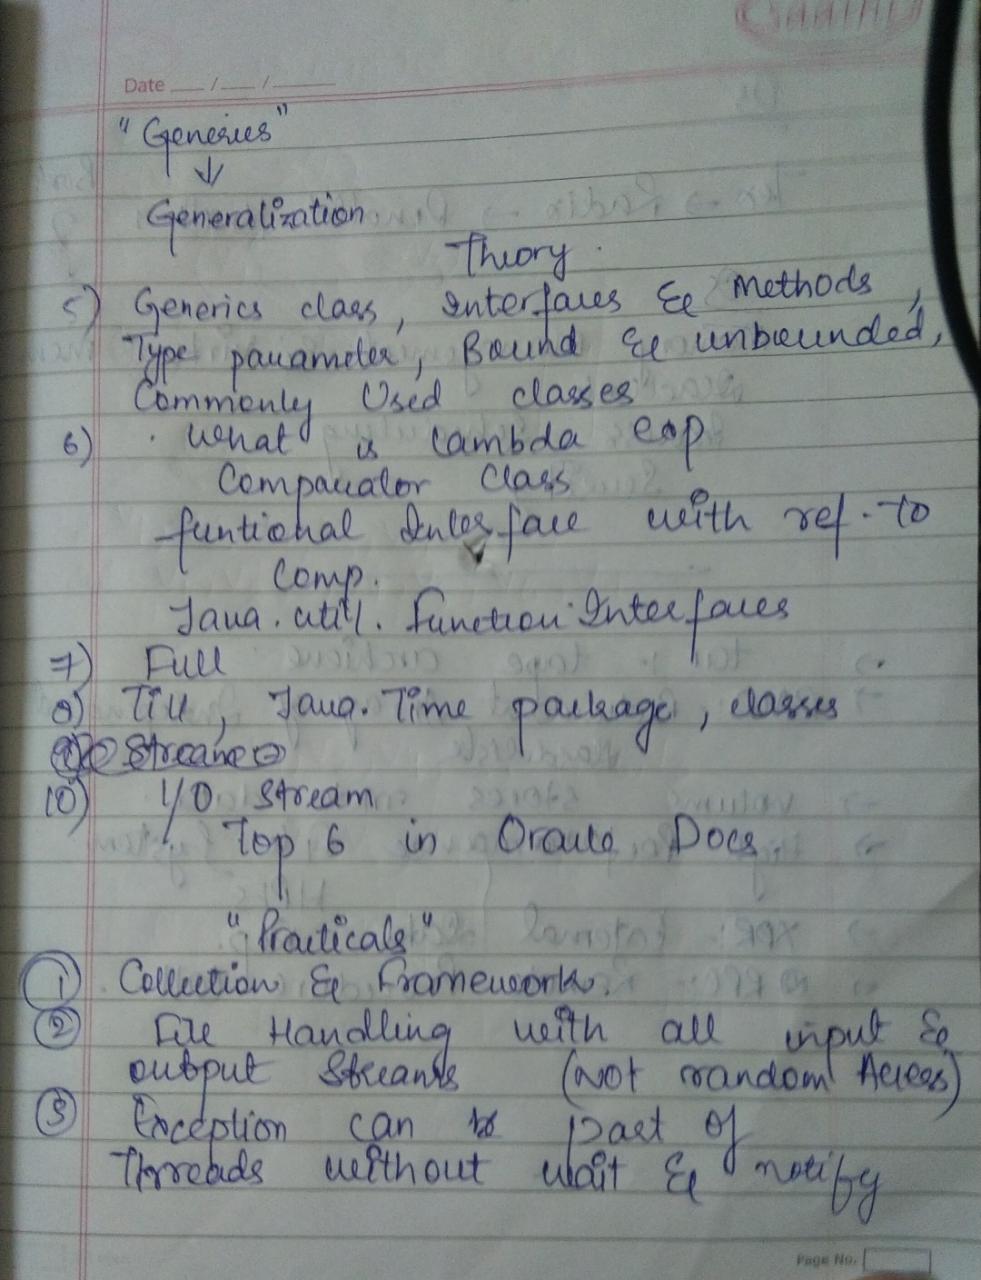 Date __/__/____
"Generics"
↓
Generalization
Theory.
5) Generics class, Interfaces & Methods,
Type parameter, Bound & unbounded,
Commonly Used classes
6) . What is lambda exp
Comparator Class
funtional Interface with ref. to
Comp.
Java. util. Function Interfaces
7) Full
8) Till, Java. Time package, classes
Stream
10) I/O Stream
Top 6 in Oracle Docs.
"Practicals"
1 Collection & Framework.
2 File Handling with all input &
output Streams (Not random Access)
3 Exception can be part of
Threads without wait & notify
Page No.